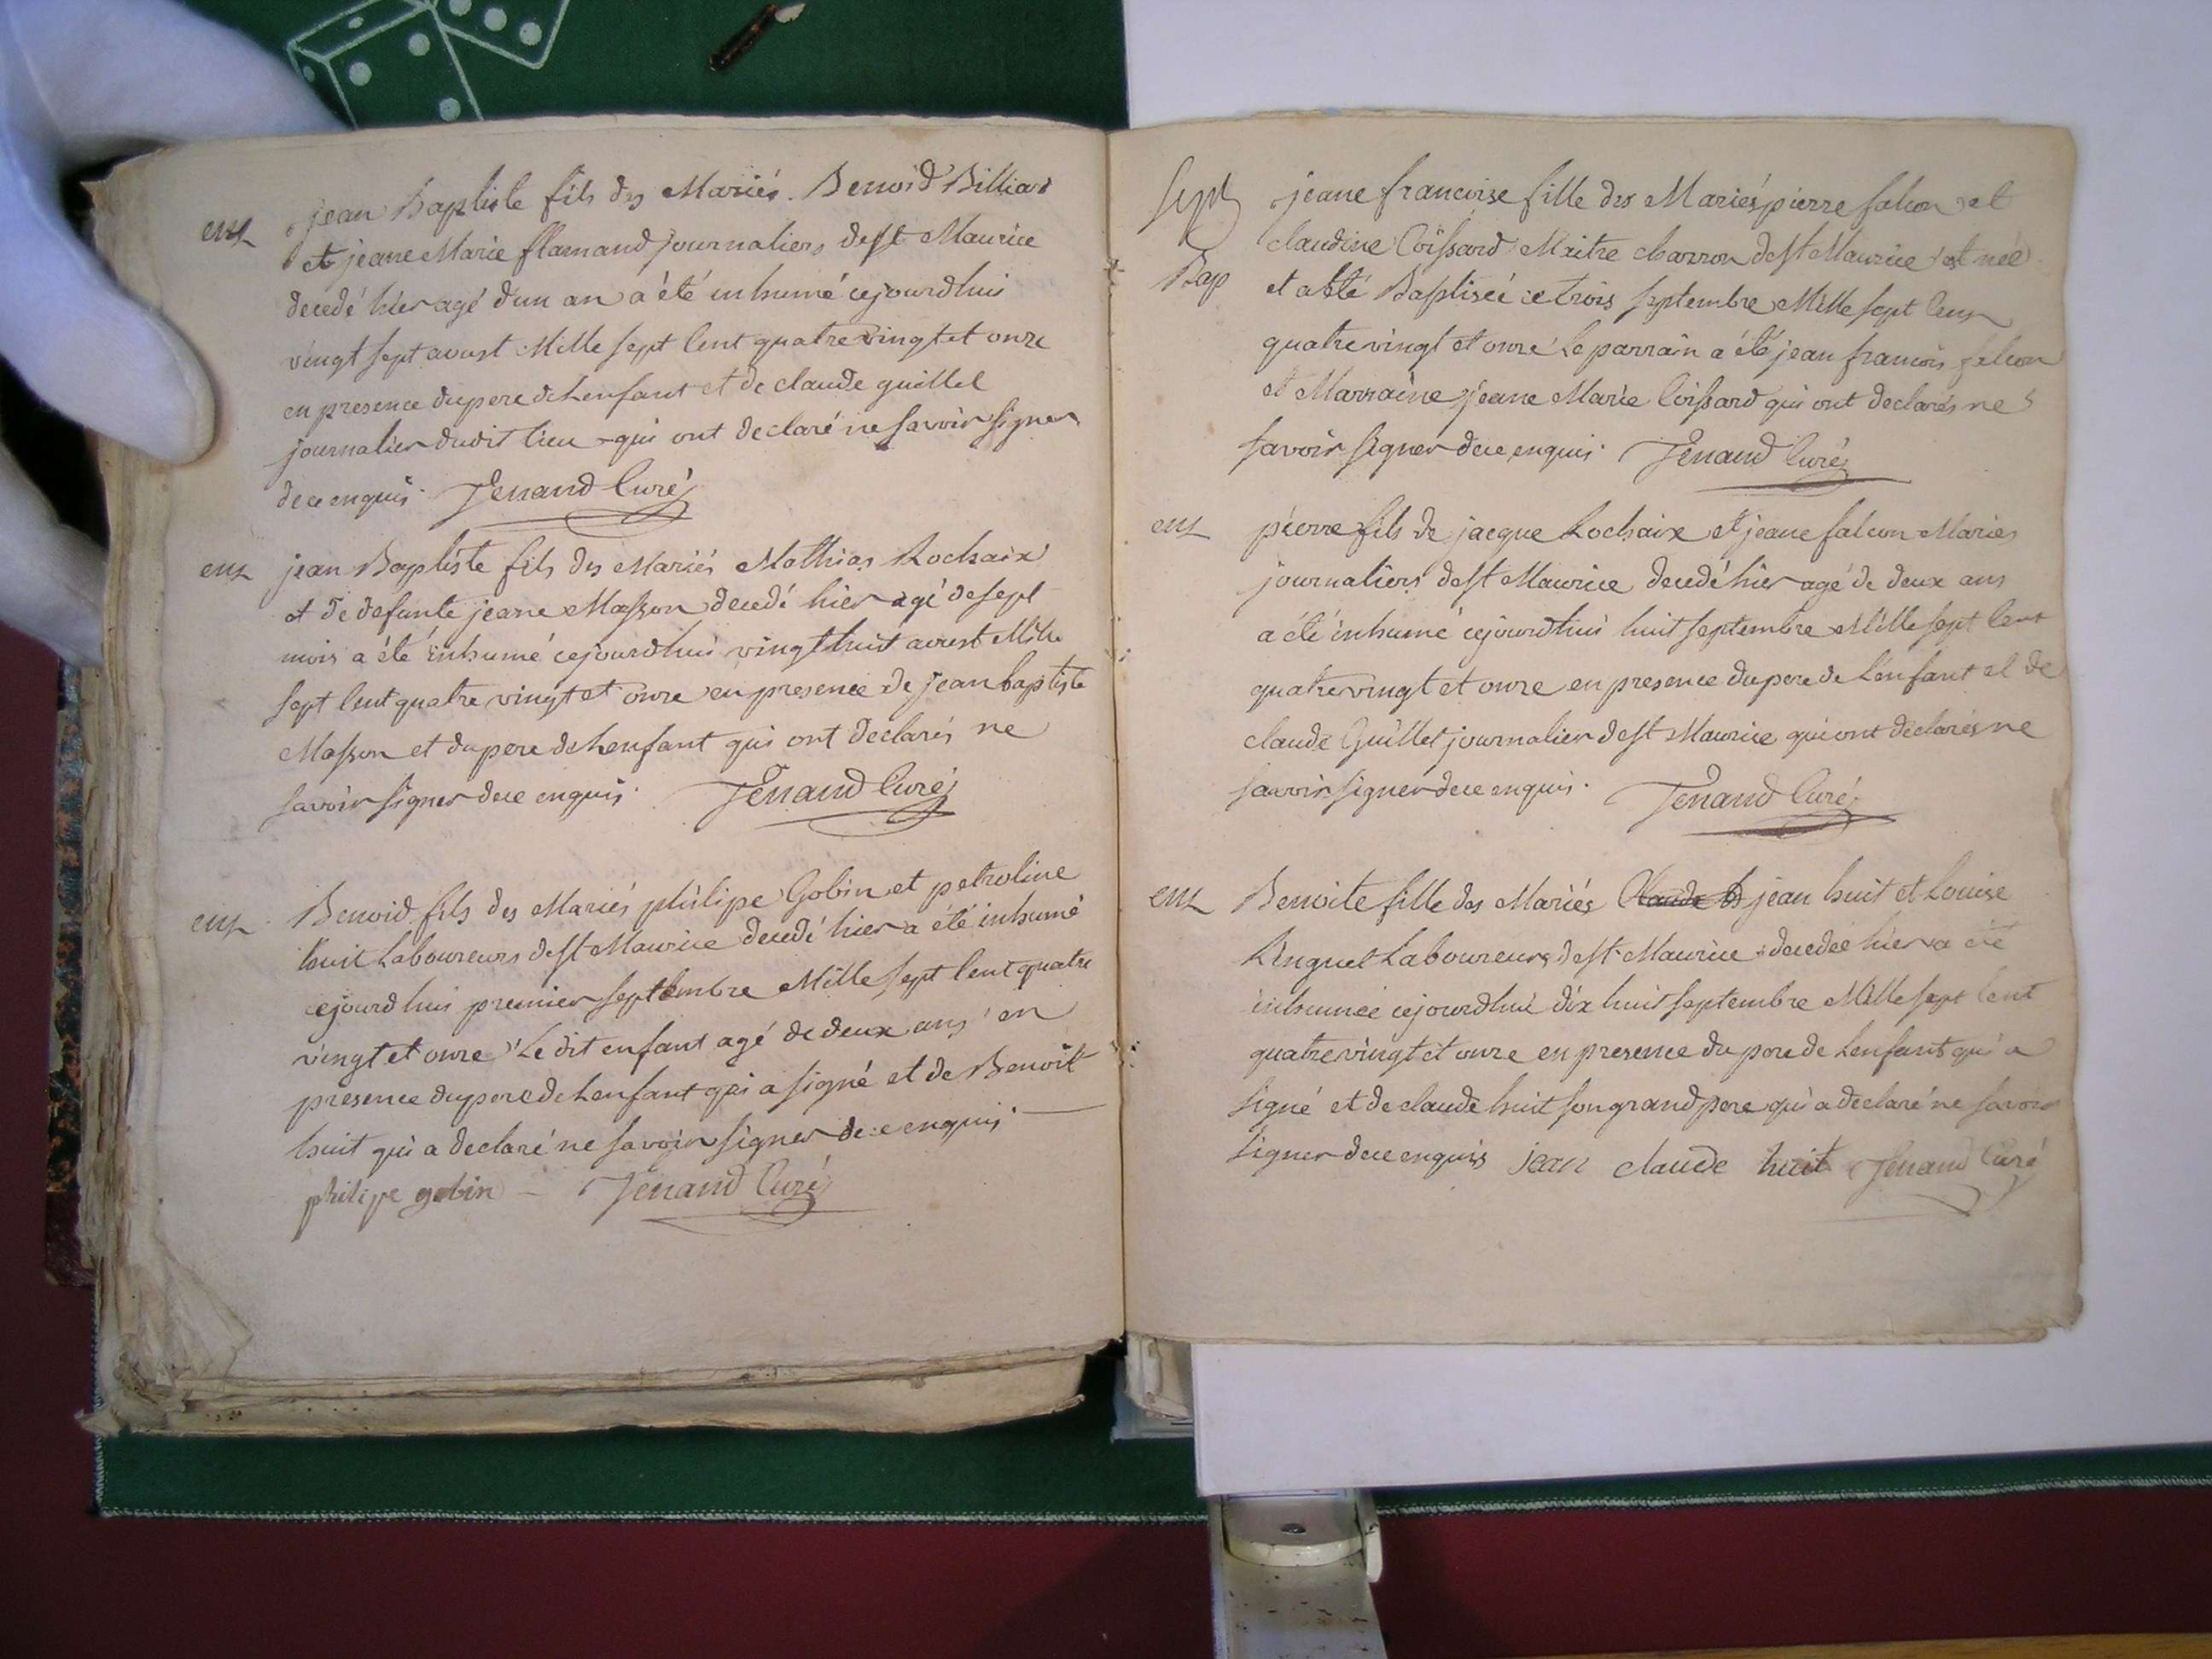 ent jean Baptiste fils des Mariés Benoid Billiard
et jeane Marie flamand journaliers de st Maurice
decedé hier agé dun an a été inhumé cejourdhui
vingt sept aoust Mille sept Cent quatre vingt et onze
en presence du pere de Lenfant et de claude guillet
journalier dudit lieu qui ont declaré ne savoir signer
de ce enquis. Tenand Curé
ent jean Baptiste fils des Mariés Mathias Rochaix
et de defunte jeane Masson decedé hier agé de sept
mois a été inhumé cejourdhui vingt huit aoust Mille
sept Cent quatre vingt et onze en presence de jean baptiste
Masson et du pere de Lenfant qui ont declarés ne
savoir signer de ce enquis. Tenand Curé
ent Benoid fils des Mariés philipe Gobin et petroline
huit Laboureurs de st Maurice decedé hier a été inhumé
cejourdhui premier septembre Mille sept Cent quatre
vingt et onze Le dit enfant agé de deux ans en
presence du pere de Lenfant qui a signé et de Benoit
huit qui a declaré ne savoir signer de ce enquis.
philipe gobin – Tenand Curé
Sept jeane francoise fille des Mariés pierre falcon et
claudine Coissard Maitre charron de st Maurice est née
Bap et a été Baptisée ce trois septembre Mille sept Cent
quatre vingt et onze Le parrain a été jean francois falcon
et Marraine jeane Marie Coissard qui ont declarés ne
savoir signer de ce enquis. Tenand Curé
ent pierre fils de jacque Rochaix et jeane falcon Maries
journaliers de st Maurice decedé hier agé de deux ans
a été inhumé cejourdhui huit septembre Mille sept Cent
quatre vingt et onze en presence du pere de Lenfant et de
claude Guillet journalier de st Maurice qui ont declarés ne
savoir signer de ce enquis. Tenand Curé
ent Benoite fille des Mariés jean huit et Louise
Linguet Laboureurs de st Maurice decedée hier a été
inhumée cejourdhui dix huit septembre Mille sept Cent
quatre vingt et onze en presence du pere de Lenfant qui a
signé et de claude huit son grand pere qui a declaré ne savoir
signer de ce enquis jean claude huit Tenand Curé